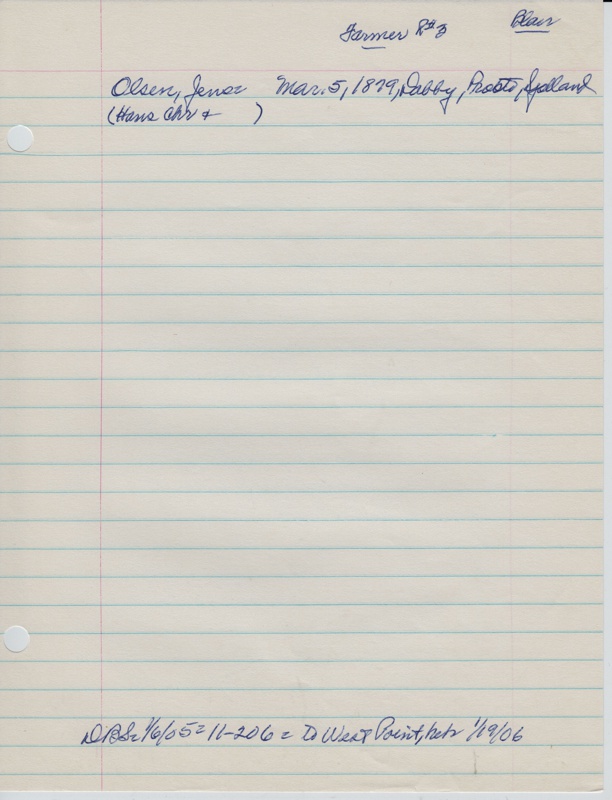 Farmer R#3 Blair
Olsen, Jens= Mar. 5, 1879, Dabby, Præstø, Sjælland
(Hans Chr + )
DBS= 1/6/05= 11-206= To West Point, Nebr 1/19/06